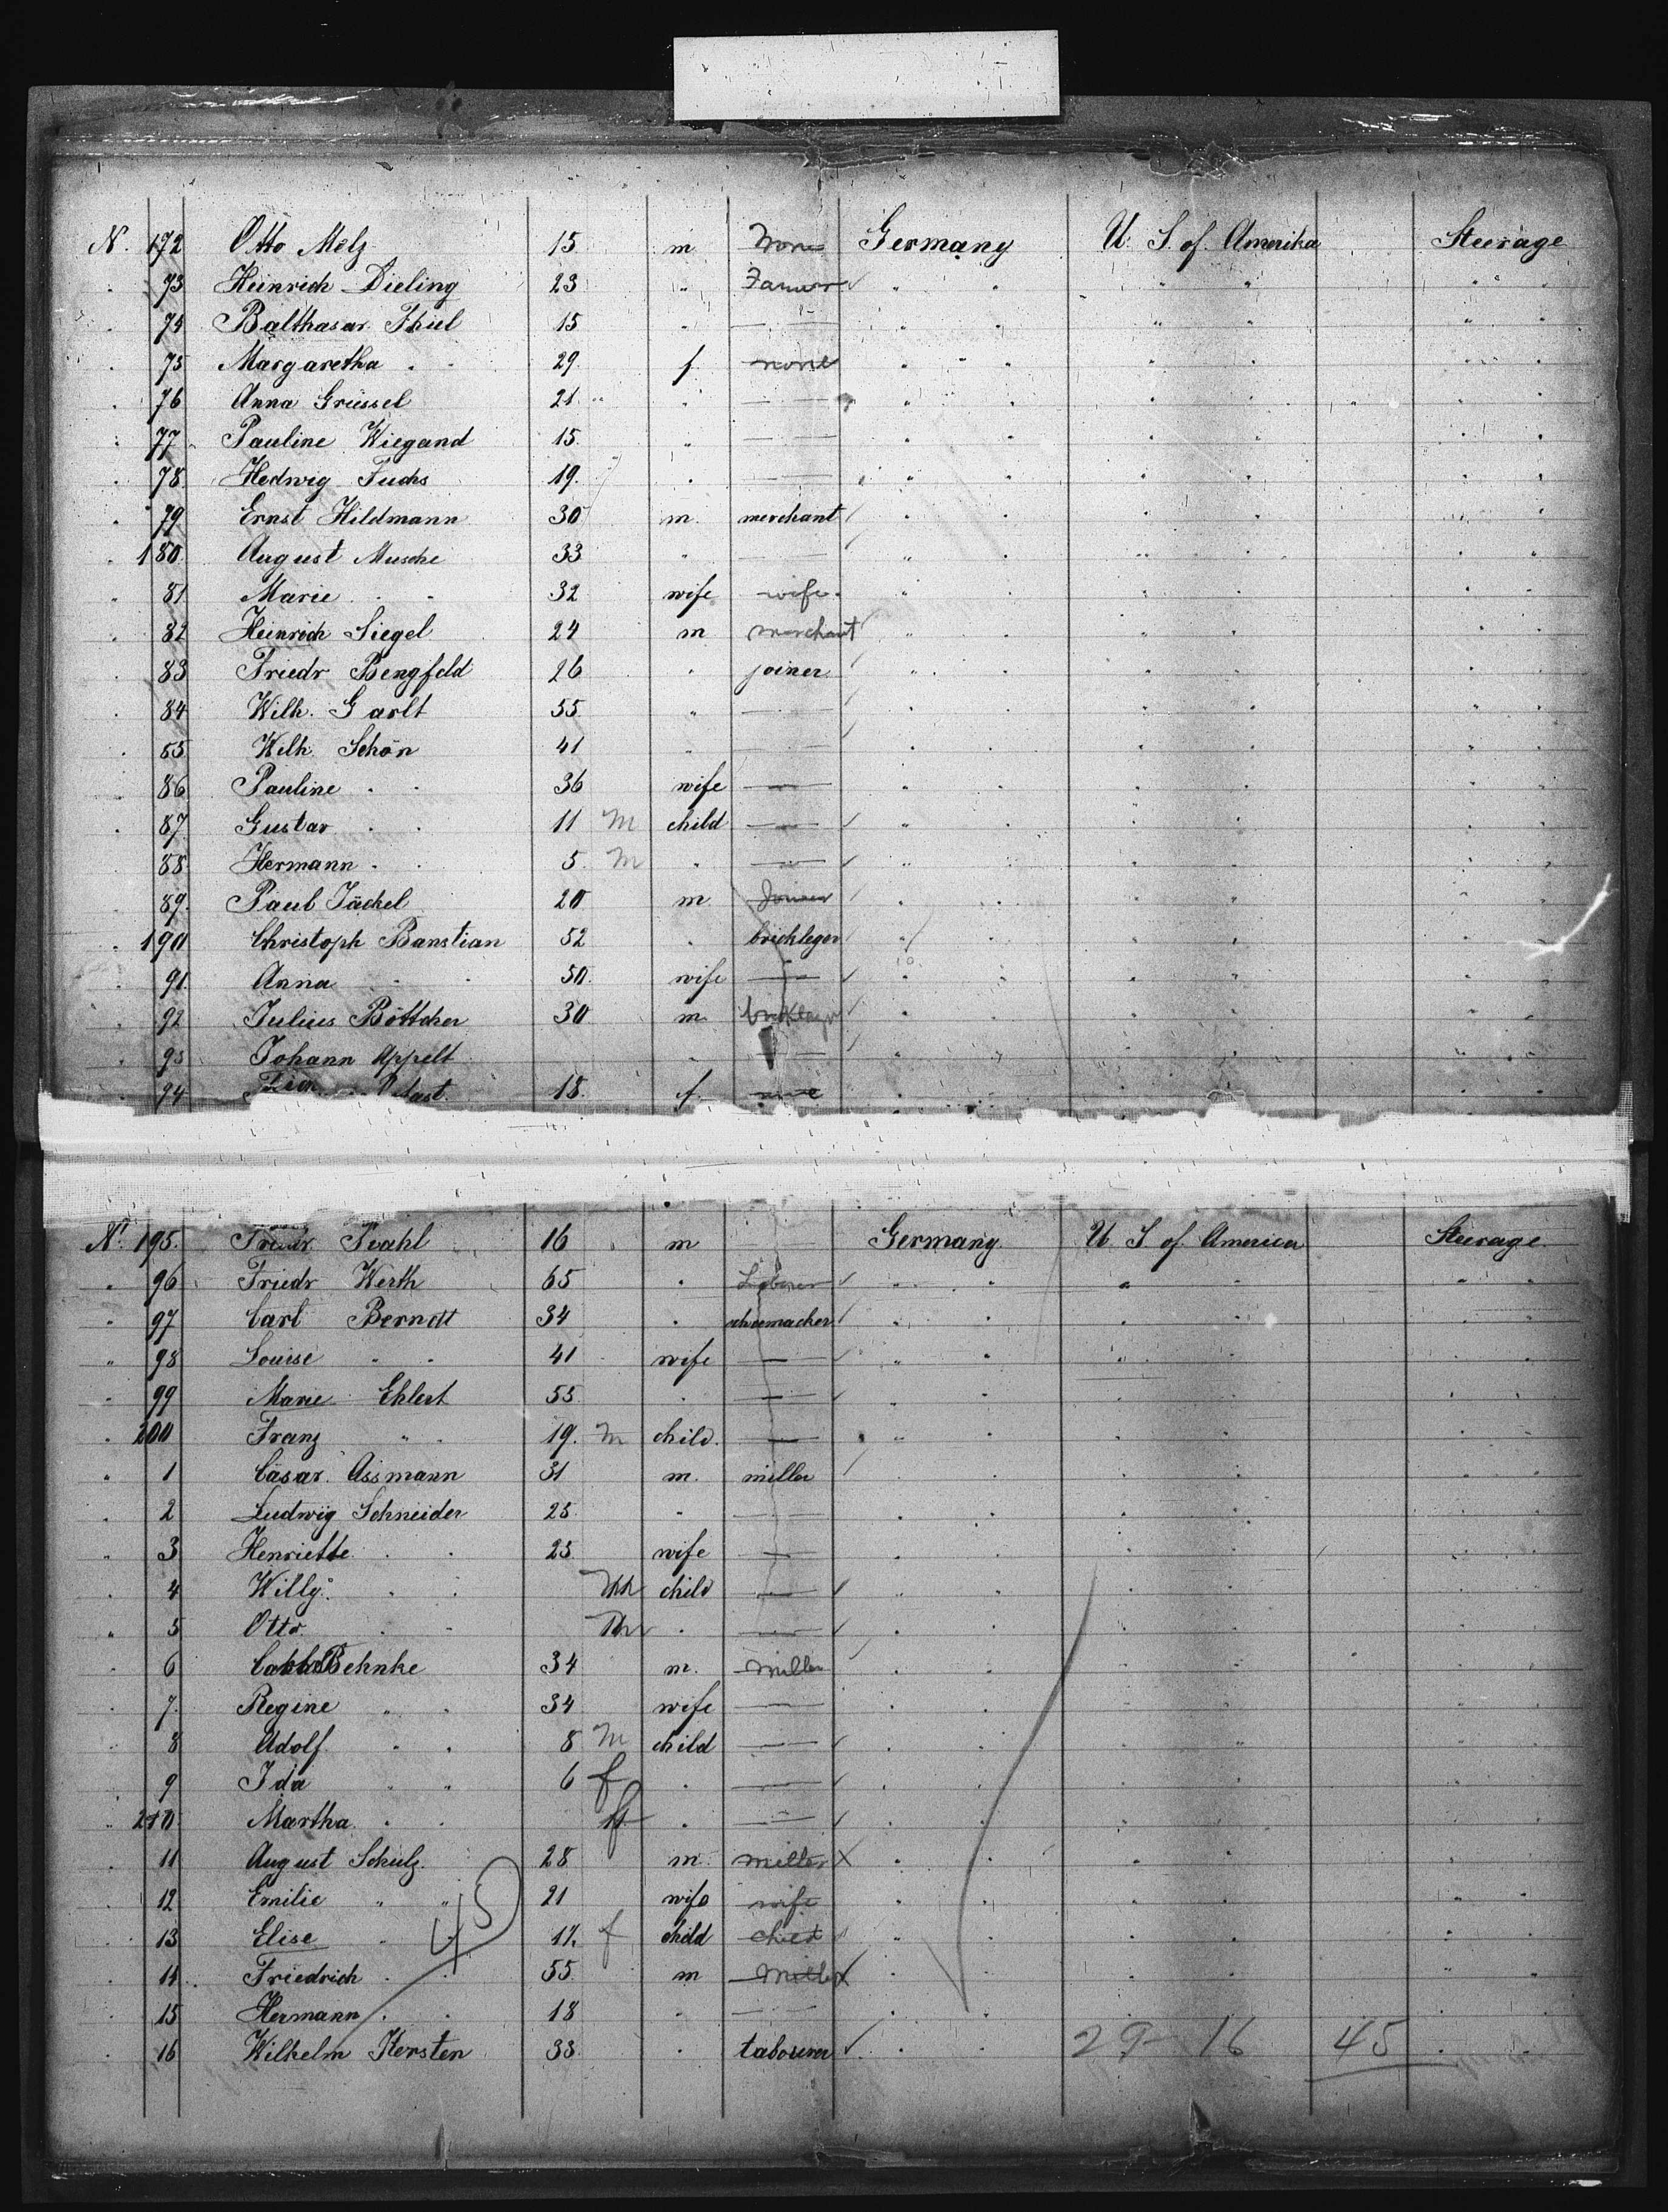 N. 172 Otto Melz 15 m None Germany U. S. of. Amerika Steerage
" 73 Heinrich Dieling 23 " Farmer " " " " " "
" 74 Balthasar Thiel 15 " — " " " " " "
" 75 Margaretha " " 29. f. none " " " " " "
" 76 Anna Grüssel 21 " — " " " " " "
" 77 Pauline Wiegand 15. " — " " " " " "
" 78 Hedwig Fuchs 19. " — " " " " " "
" 79 Ernst Hildmann 30 m. merchant " " " " " "
" 180. August Musche 33 " — " " " " " "
" 81 Marie " " 32 wife wife " " " " " "
" 82 Heinrich Siegel 24 m merchant " " " " " "
" 83 Friedr Bengfeld 26 " joiner " " " " " "
" 84 Wilh. Garlt 55. " — " " " " " "
" 85 Wilh. Schön 41 " — " " " " " "
" 86 Pauline " " 36 wife — " " " " " "
" 87 Gustav " " 11 M child — " " " " " "
" 88 Hermann " " 5. M " — " " " " " "
" 89. Paul Jäckel 20 m " " " " " "
" 190 Christoph Banstian 52 " brickleger " " " " " "
" 91. Anna " " 50. wife — " " " " " "
" 92 Julius Böttcher 30 m " " " " " "
" 93 Johann Appelt " — " " " " " "
" 94 18. f. " " " " " "
No. 195. Friedr. Pahl 16 m Germany. U. S of. America Steerage
" 96 Friedr Werth 65 " Laborer " " " " " "
" 97 Carl Berndt 34 " schumacher " " " " " "
" 98 Louise " " 41 wife — " " " " " "
" 99 Marie Ehlert 53 " — " " " " " "
" 200 Franz " " 19. M child. — " " " " " "
" 1 Cäsar Assmann 31 m. miller " " " " " "
" 2 Ludwig Schneider 25. " — " " " " " "
" 3 Henriette " " 25 wife — " " " " " "
" 4 Willy " " M child — " " " " " "
" 5 Otto " " M " — " " " " " "
" 6 Behnke 34 m. Miller " " " " " "
" 7. Regine " " 34 wife — " " " " " "
" 8 Adolf " " 8 M child — " " " " " "
" 9 Ida " " 6 f " — " " " " " "
" 210 Martha " " f " — " " " " " "
" 11 August Schulz. 28 m. miller X " " " " " "
" 12 Emilie " " 21 wife wife " " " " " "
" 13 Elise " " f child child " " " " " "
" 14 Friedrich " " 55. m Miller X " " " " " "
" 15 Hermann " " 18 " — " " " " " "
" 16 Wilhelm Kersten 33. " labourer " " 29 - 16 45 " "
45